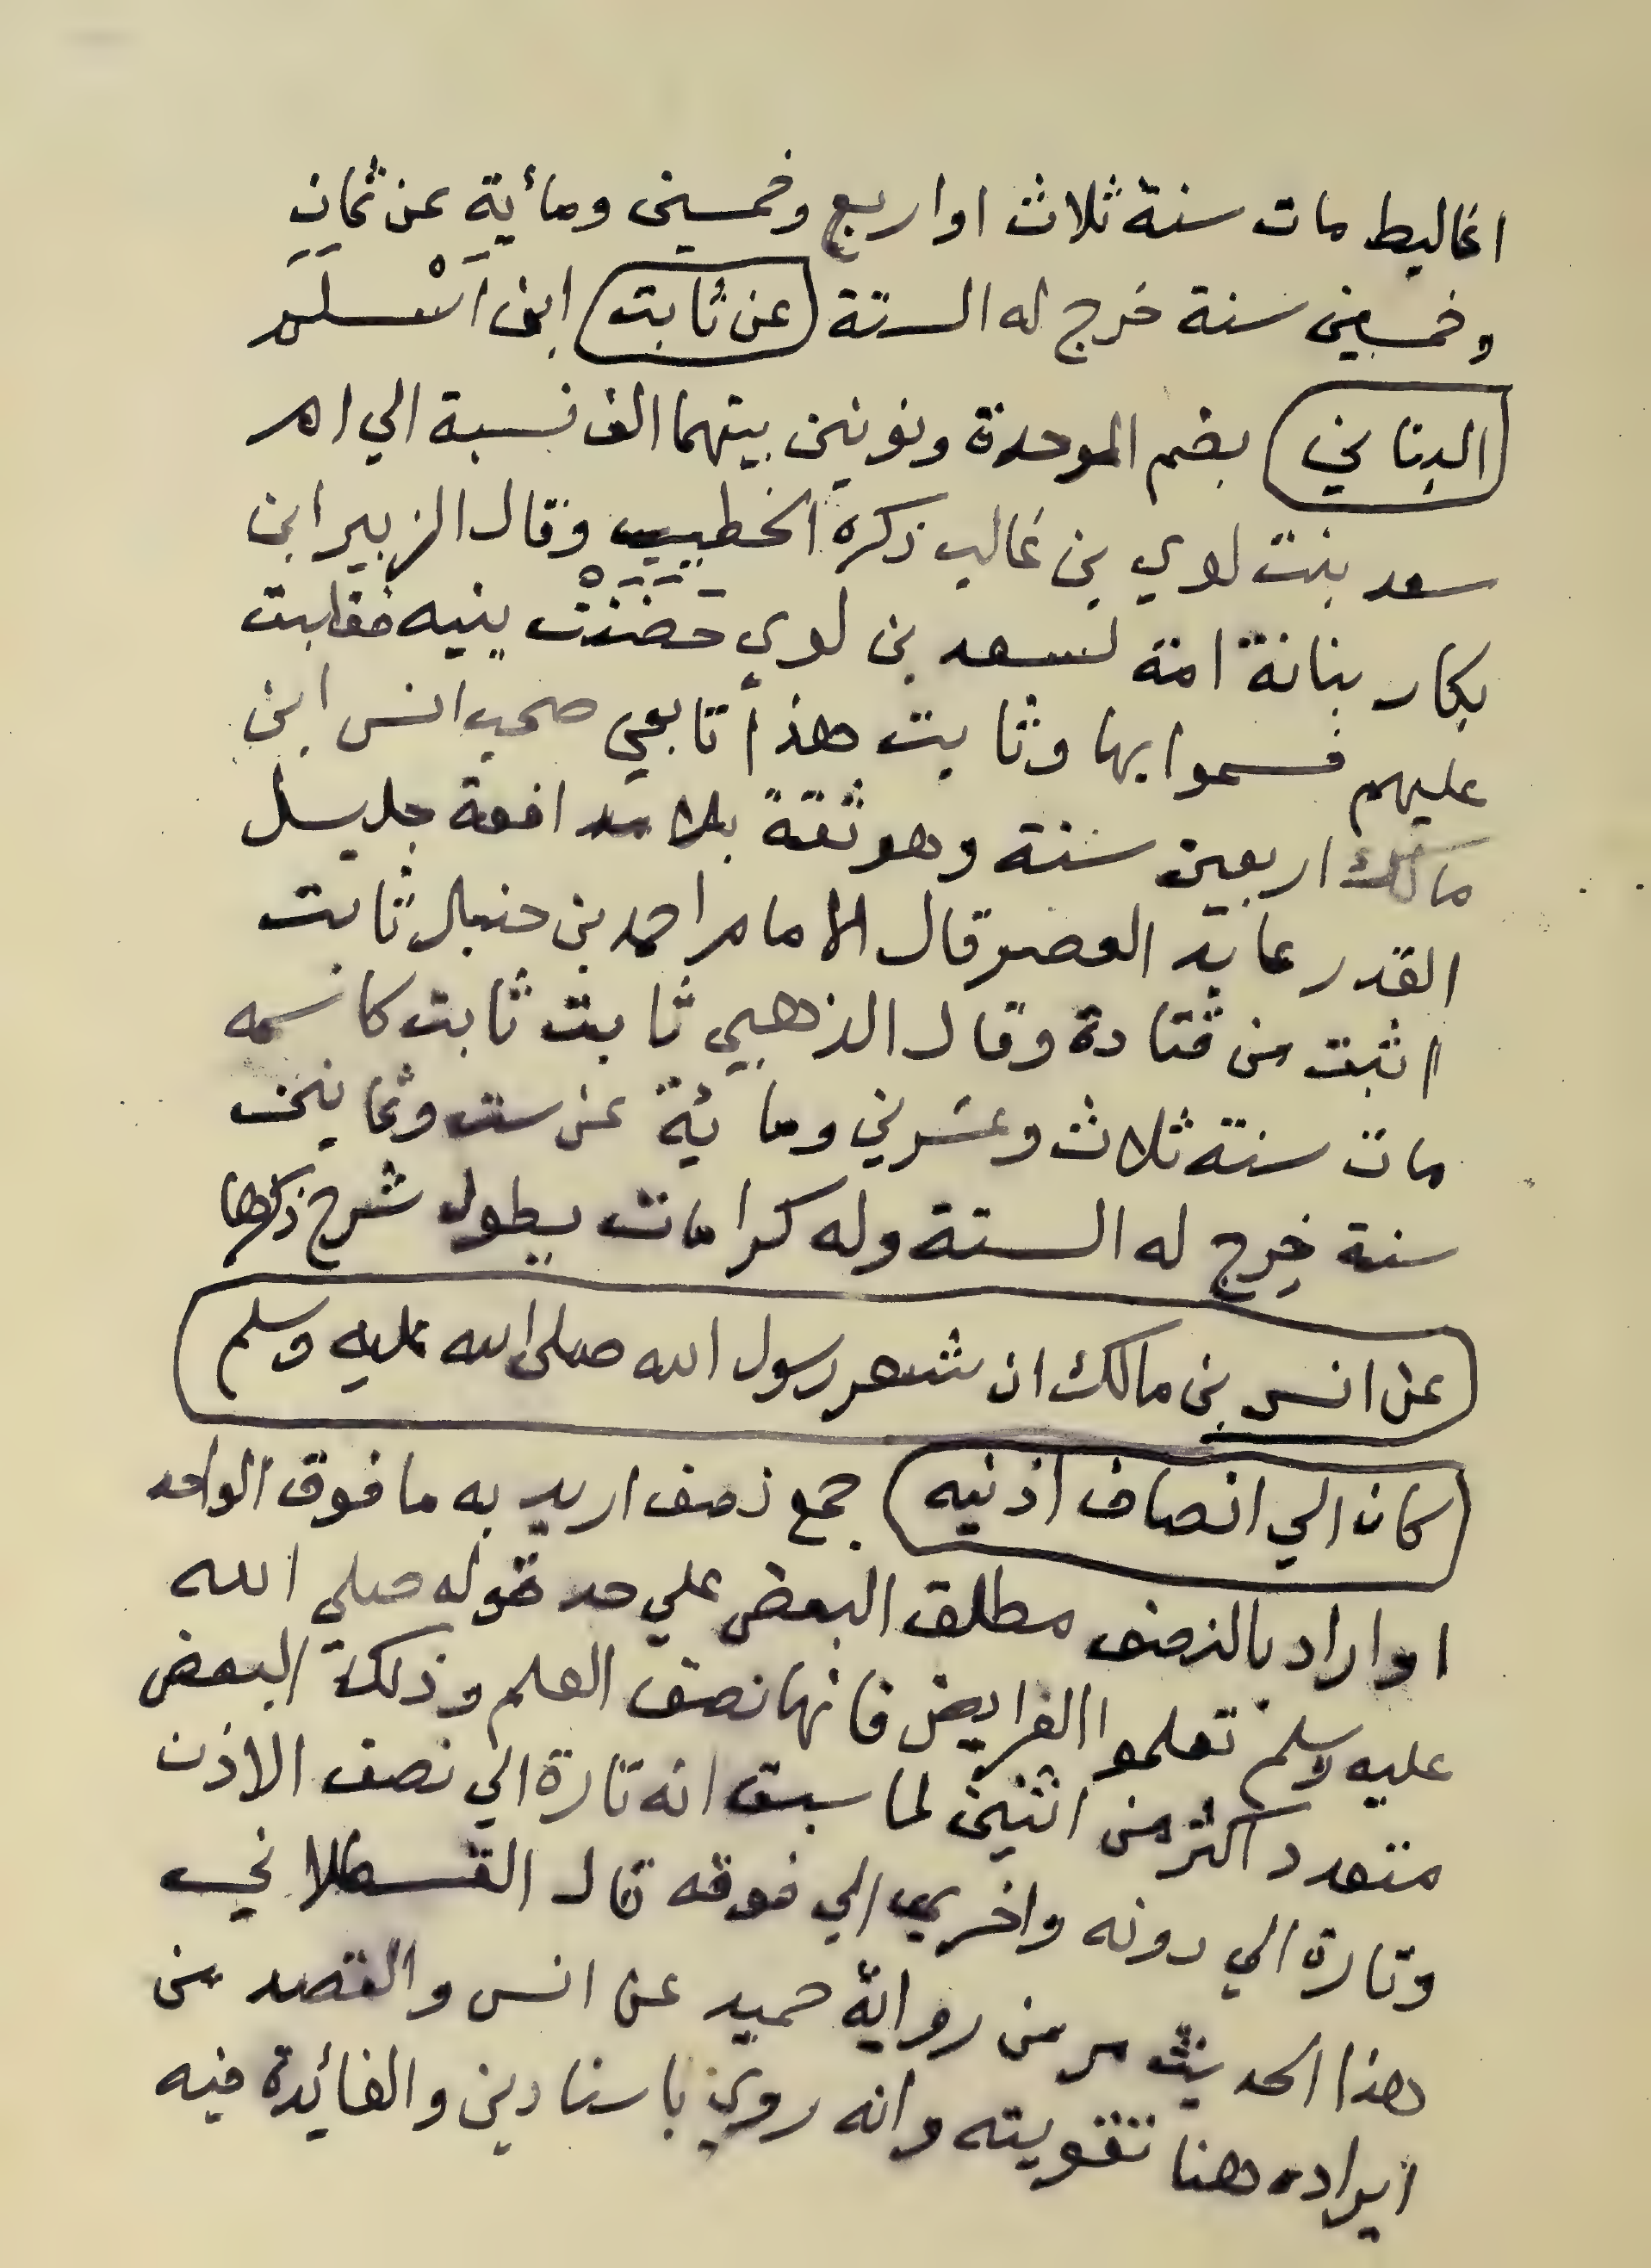 اغاليط مات سنة ثلاث او اربع وخمسين ومأية عن ثمان
وخمسين سنة خرج له الستة عن ثابت ابن اَسْلَم
البناني بضم الموحدة ونونين بينهما الف نسبة الي ام
سعد بنت لوي بن غالب ذكره الخطيب وقال الزبير ابن
بكار بنانة امة لسعد بن لوي حَضَنَتْ بنيه فغلبت
عليهم فسموا بها وثابت هذا تابعي صحب انس ابن
مالك اربعين سنة وهو ثقة بلا مدافعة جليل
القدر عابد العصر قال الامام احمد بن حنبل ثابت
اثبت من قتادة وقال الذهبي ثابت ثابت كاسمه
مات سنة ثلاث وعشرين وماية عن ست وثمانين
سنة خرج له الستة وله كرامات يطول شرح ذكرها
عن انس بن مالك ان شعر رسول الله صلى الله عليه وسلم
كان الي انصاف اذنيه جمع نصف اريد به ما فوق الواحد
او اراد بالنصف مطلق البعض علي حد قوله صلي الله
عليه وسلم تعلموا الفرايض فانها نصف العلم وذلك البعض
متعدد اكثر من اثنين لما سبق انه تارة الي نصف الاذن
وتارة الي دونه واخري الي فوقه قال القسطلاني
هذا الحديث مر من رواية حميد عن انس والقصد من
ايراده هنا تقويته وانه روي باسنادين والفائدة فيه